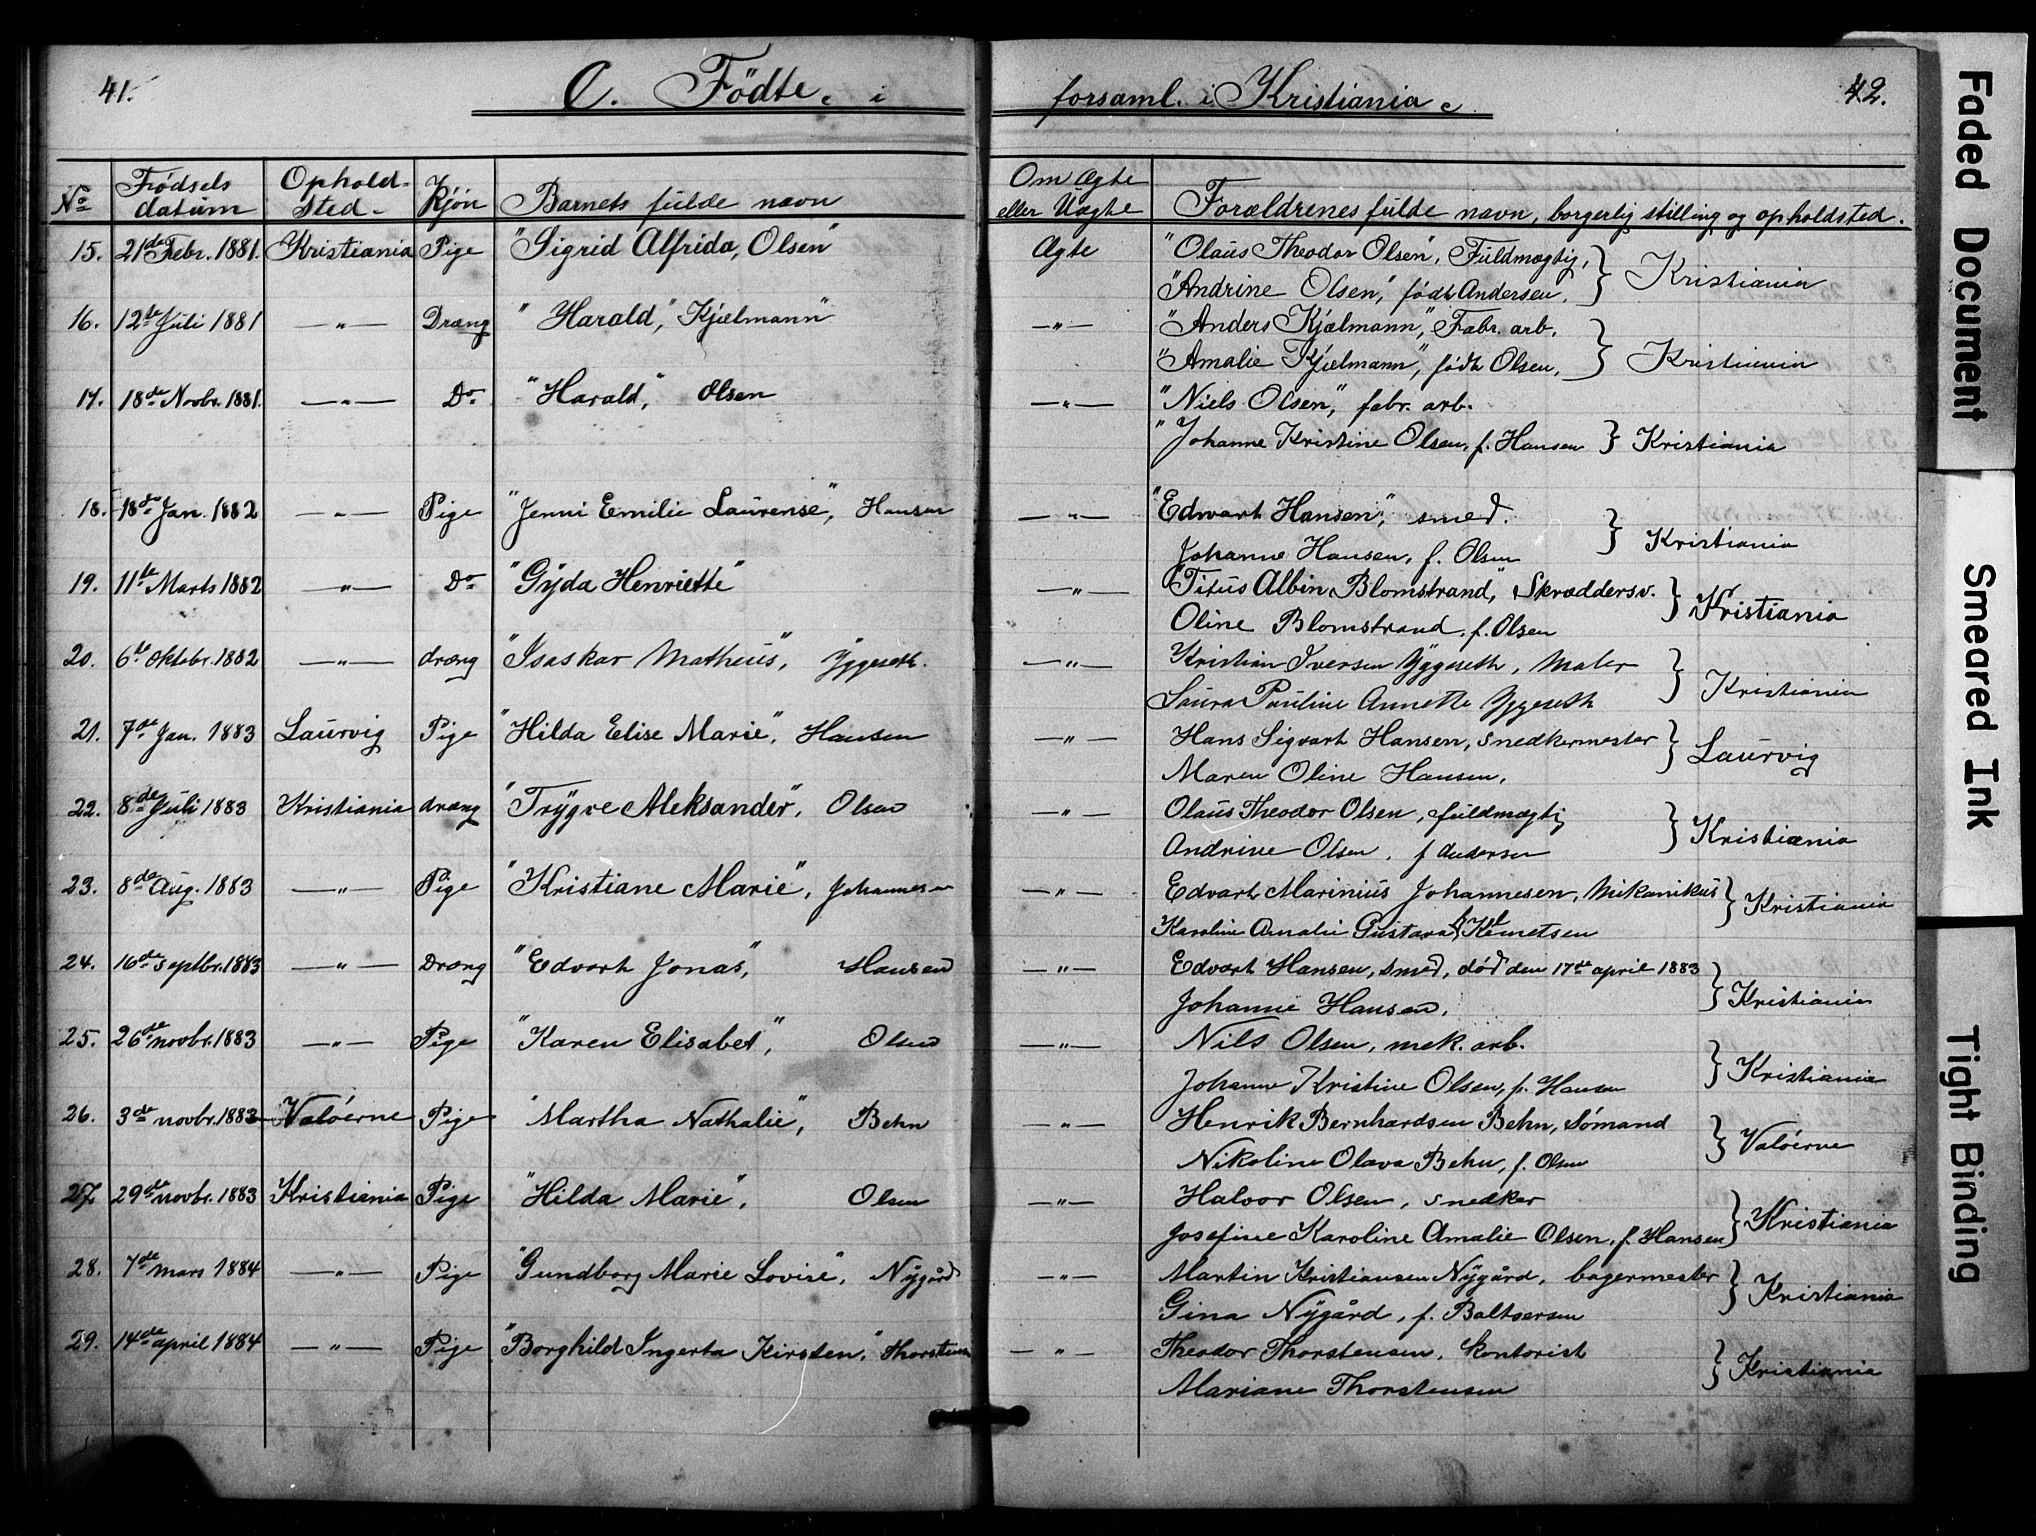 41.
C. Fødte. i
forsaml. i Kristiania.
42.
No Fødsels datum Ophold-sted. Kjøn Barnets fulde navn Om Ægte eller Uægte Forældrenes fulde navn, borgerlig stilling og opholdsted.
15. 21de Febr. 1881. Kristiania Pige "Sigrid Alfrida, Olsen" Ægte "Olaus Theodor Olsen", Fuldmægtig,
"Andrine Olsen," født Andersen, } Kristiania
16. 12te Juli 1881 —"— Dræng "Harald," Kjælmann" —"— "Anders Kjælmann," Fabr. arb.
"Amalie Kjælmann", født Olsen, } Kristiania
17. 18de Novbr. 1881. —"— Do "Harald," Olsen —"— "Niels Olsen", fabr. arb.
"Johanne Kristine Olsen, f. Hansen } Kristiania
18. 18de Jan. 1882 —"— Pige "Jenni Emilie Laurense", Hansen —"— "Edvart Hansen", smed.
Johanne Hansen, f. Olsen } Kristiania
19. 11te Marts 1882 —"— Do "Gyda Henriette" —"— "Titus Albin Blomstrand," Skræddersv.
Oline Blomstrand, f. Olsen } Kristiania
20. 6te Oktbr. 1882 —"— dræng "Isaskar Matheus", Yggeseth. —"— Kristian Iversen Yggeseth, Maler
Laura Pauline Annette Yggeseth } Kristiania
21. 7de Jan. 1883 Laurvig Pige "Hilda Elise Marie", Hansen —"— Hans Sigvart Hansen, snedkermester
Maren Oline Hansen, } Laurvig
22. 8de Juli 1883 Kristiania dræng "Trygve Aleksander", Olsen —"— Olaus Theodor Olsen, fuldmægtig
Andrine Olsen, f Andersen } Kristiania
23. 8de Aug. 1883 —"— Pige "Kristiane Marie", Johannesen —"— Edvart Marinius Johannesen, Mikanikus
Karoline Amalie Gustava f. Klemetsen } Kristiania
24. 16de septbr. 1883 —"— Dræng "Edvart Jonas", Hansen —"— Edvart Hansen, smed, død den 17de april 1883
Johanne Hansen, } Kristiania
25. 26de novbr. 1883 —"— Pige "Karen Elisabet", Olsen —"— Nils Olsen, mek. arb.
Johanne Kristine Olsen, f. Hansen } Kristiania
26. 3de novbr. 1883 Valøerne Pige "Martha Nathalie", Behn —"— Henrik Bernhardsen Behn, Sømand
Nikoline Olava Behn, f. Olsen } Valøerne
27 29de novbr. 1883 Kristiania Pige "Hilda Marie", Olsen —"— Halvor Olsen, snedker
Josefine Karoline Amalie Olsen, f. Hansen } Kristiania
28. 7de mars 1884 —"— Pige "Gundborg Marie Lovise", Nygård —"— Martin Kristiansen Nygård, bagermester
Gina Nygård, f. Baltsersen } Kristiania
29. 14de april 1884 —"— Pige "Borghild Ingerta Kirsten", Thorstensen —"— Theodor Thorstensen, Kontorist
Mariane Thorstensen } Kristiania
Faded Document
Smeared Ink
Tight Binding